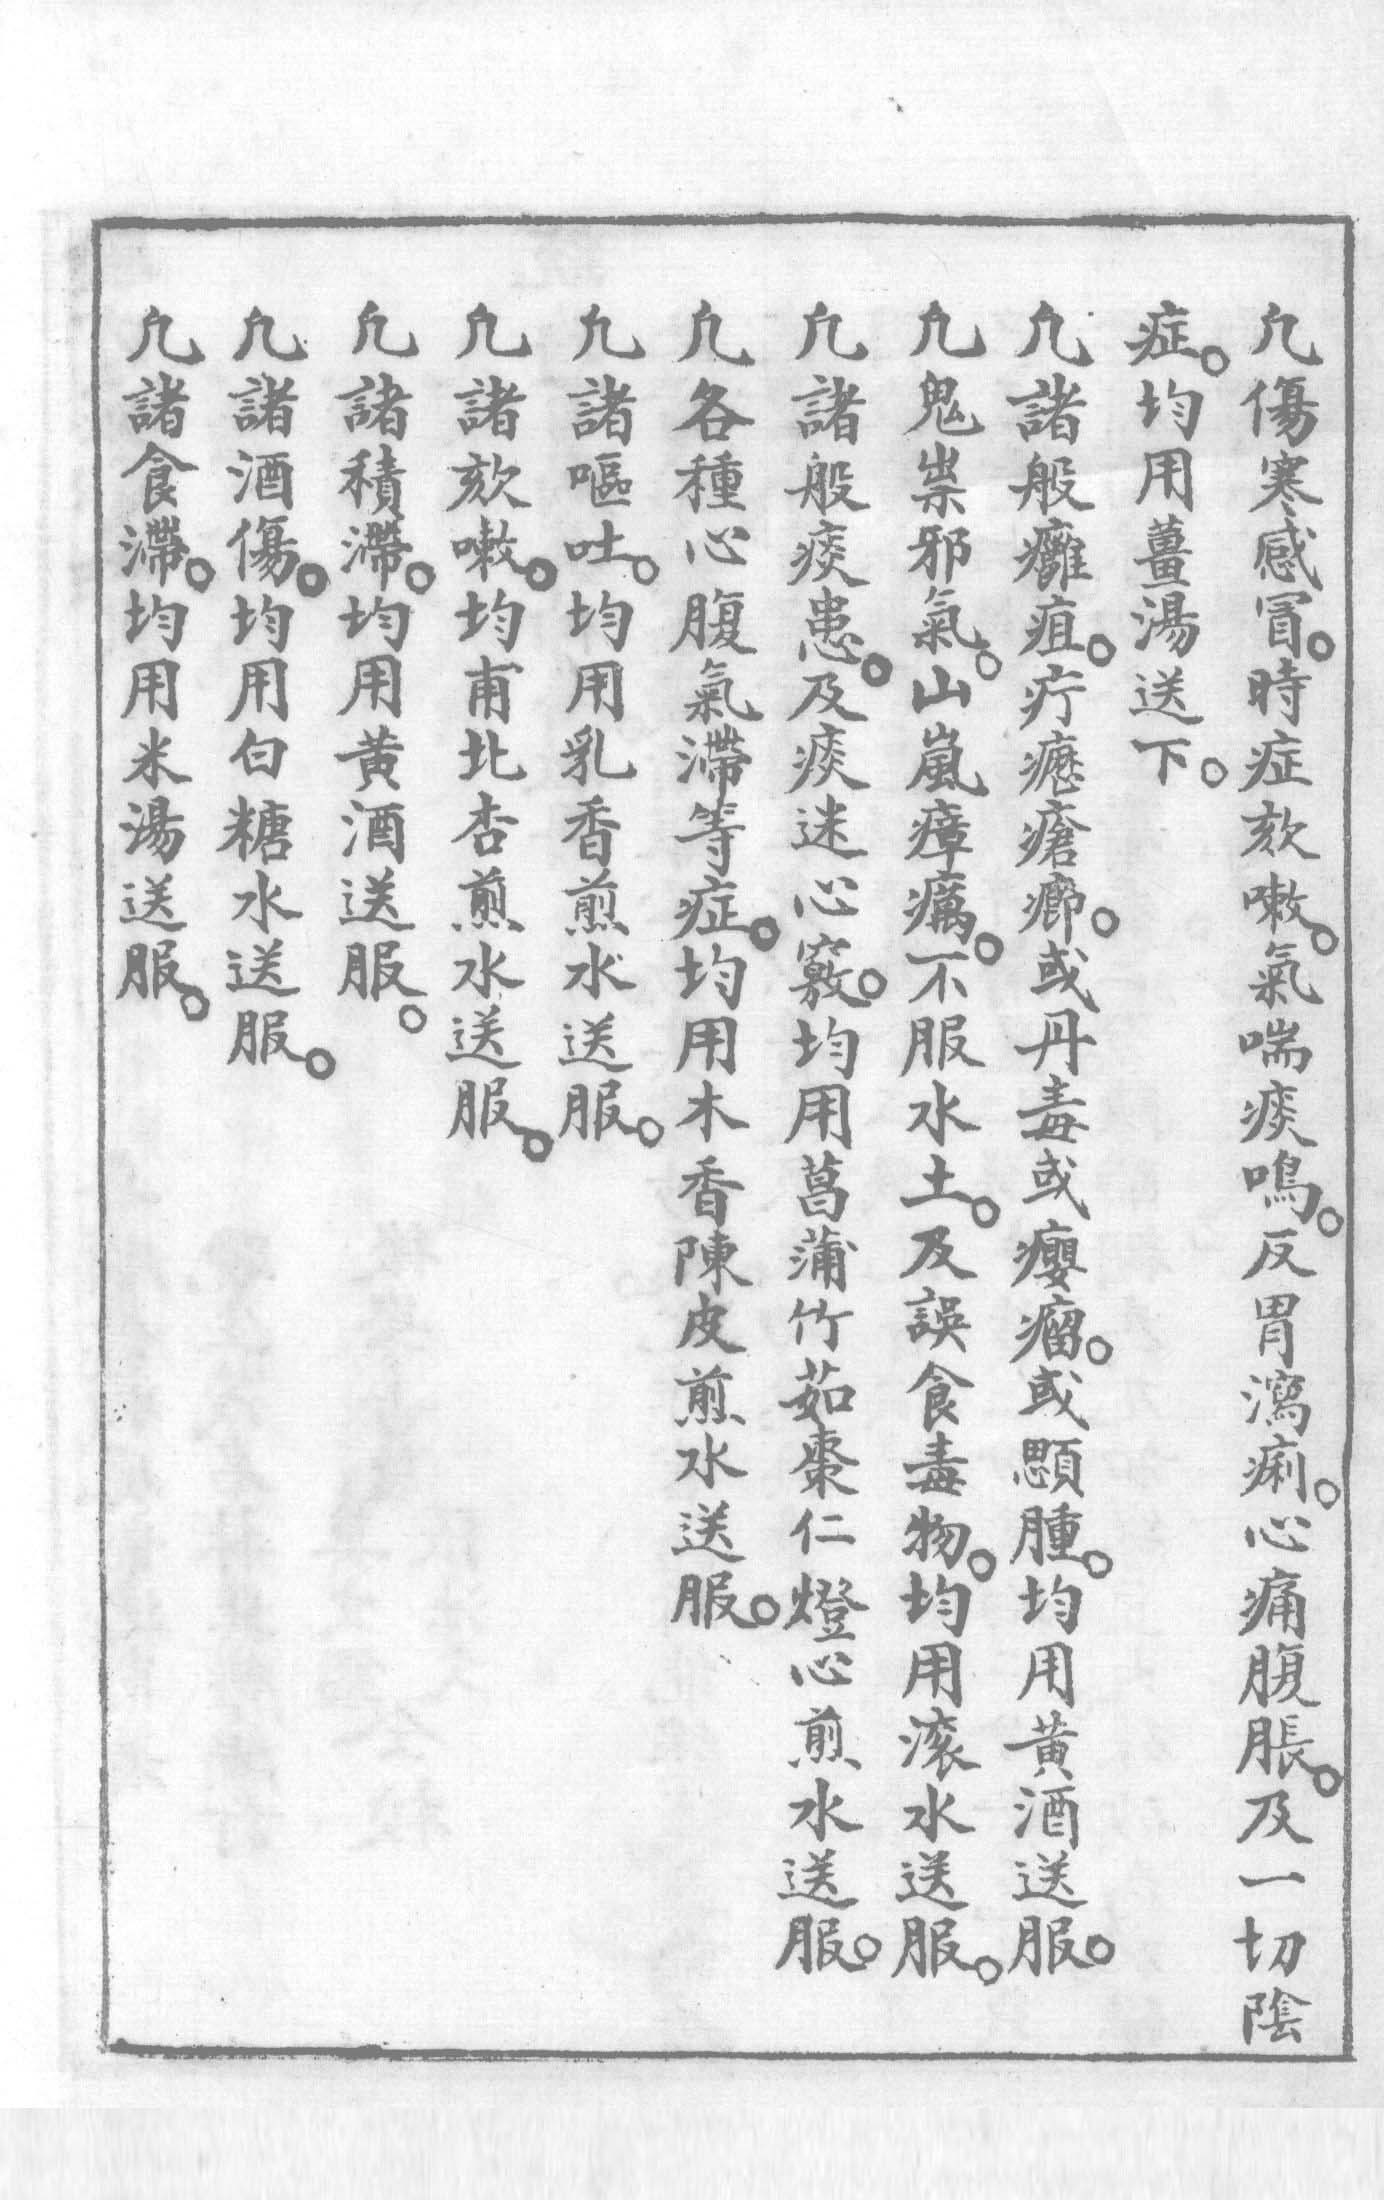 凢傷寒感冒。時症欬嗽。氣喘痰鳴。反胃瀉痢。心痛腹脹。及一切陰
症。均用薑湯送下。
凢諸般癰疽。疔瘛瘡癤。或丹毒或癭瘤。或顋腫。均用黄酒送服。
凢鬼祟邪氣。山嵐瘴癘。不服水土。及誤食毒物。均用滚水送服。
凢諸般痰患。及痰迷心竅。均用菖蒲竹茹棗仁燈心煎水送服。
凢各種心腹氣滯等症。均用木香陳皮煎水送服。
凢諸嘔吐。均用乳香煎水送服。
凢諸欬嗽。均甫北杏煎水送服。
凢諸積滯。均用黄酒送服。
凢諸酒傷。均用白糖水送服。
凢諸食滯。均用米湯送服。